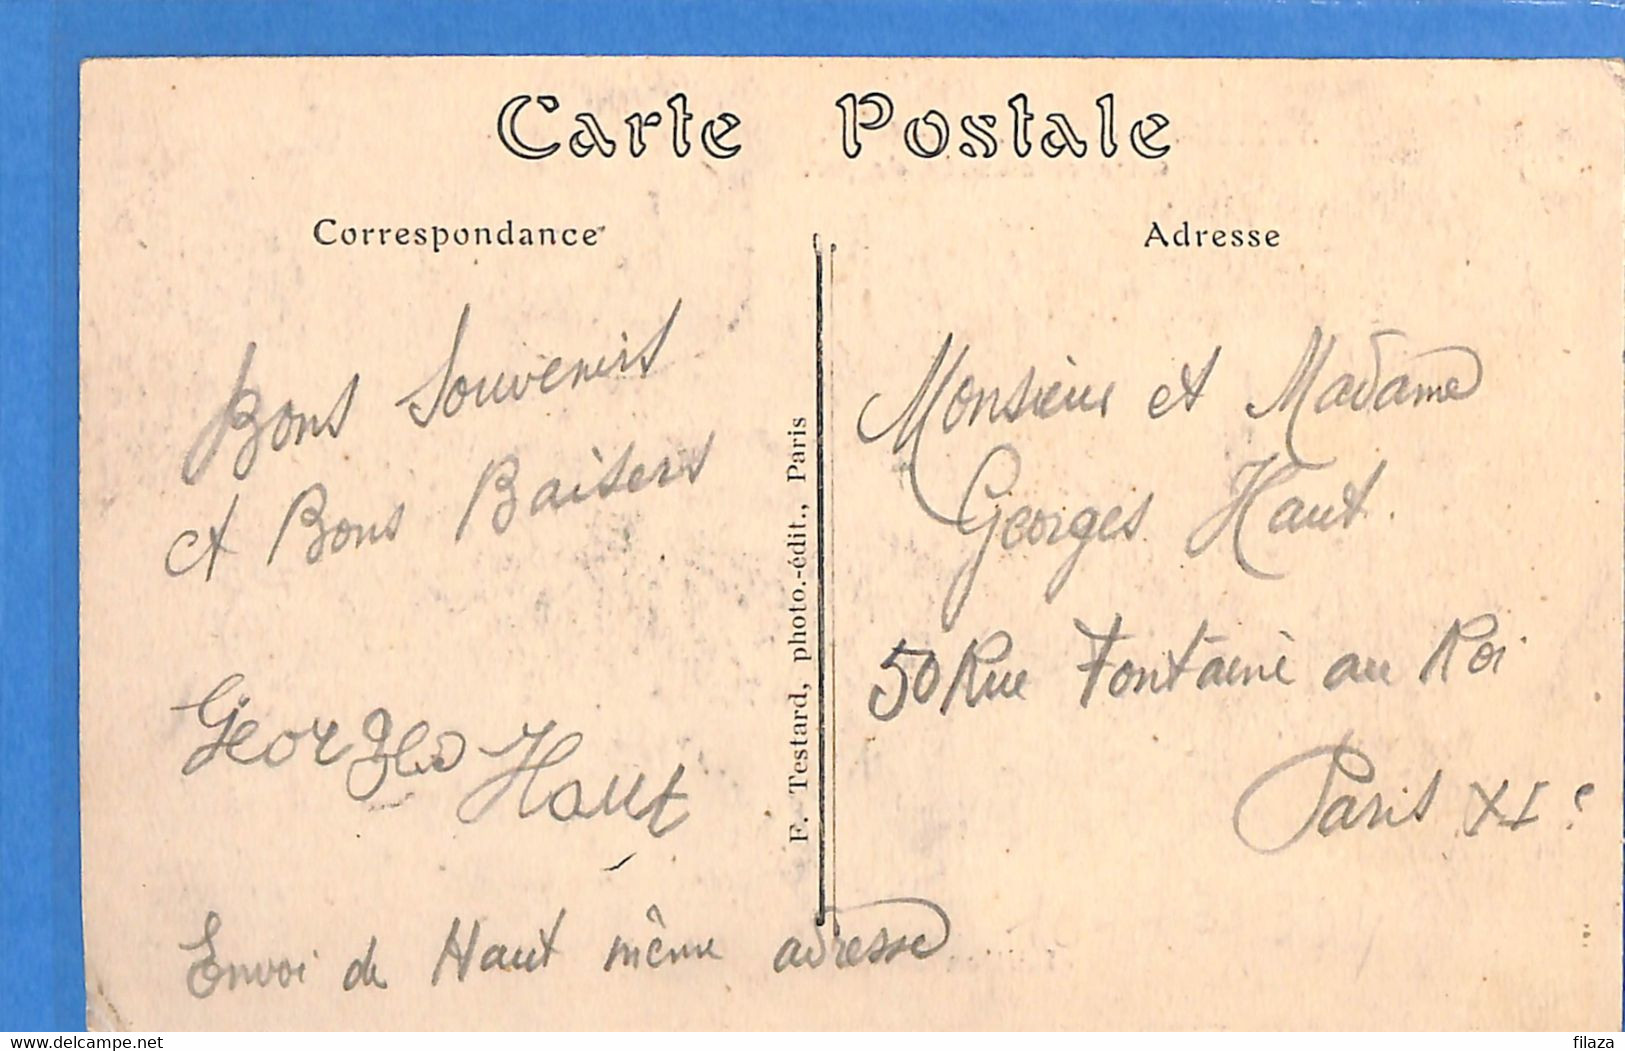 Carte Postale
Correspondance
Bons Souvenirs
et Bons Baisers
Georges Haut
Envoi de Haut même adresse
F. Testard, photo.-édit., Paris
Adresse
Monsieur et Madame
Georges Haut.
50 Rue Fontaine au Roi
Paris XIe
delcampe.net
filaza